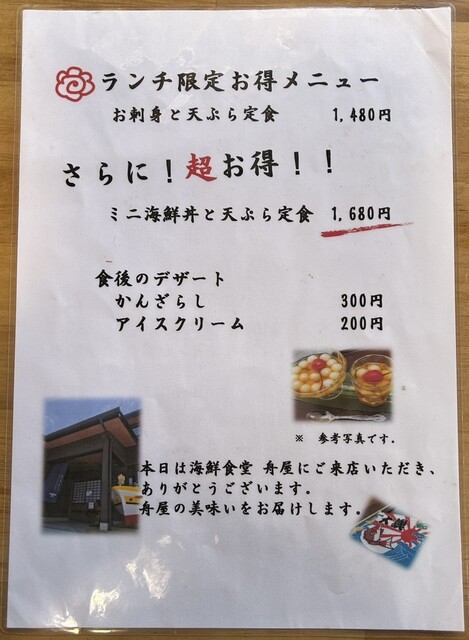 ランチ限定お得メニュー
お刺身と天ぷら定食 1,480円
さらに！超お得！！
ミニ海鮮丼と天ぷら定食 1,680円
食後のデザート
かんざらし 300円
アイスクリーム 200円
※ 参考写真です。
本日は海鮮食堂 舟屋にご来店いただき、
ありがとうございます。
舟屋の美味いをお届けします。